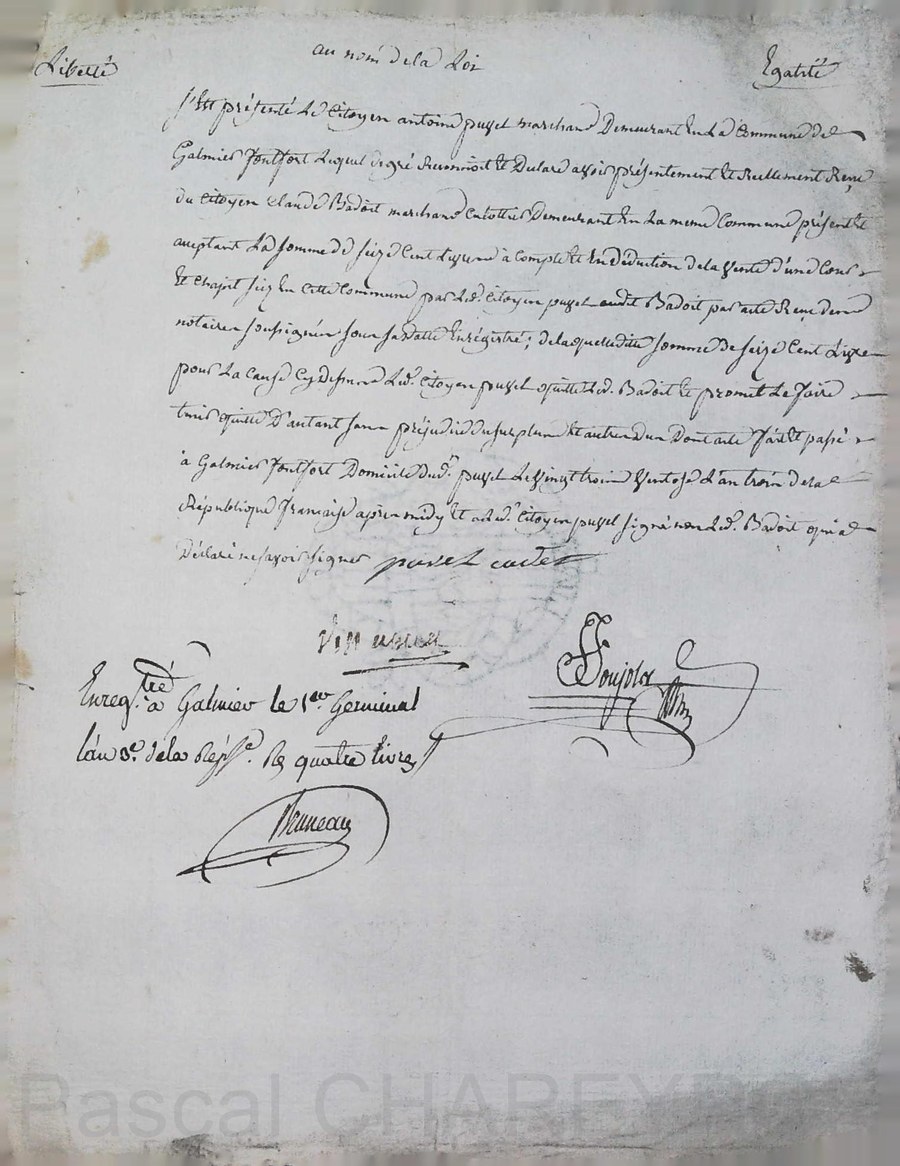 Liberté au nom de la Loi Egalité
s'Est présenté Le Citoyen antoine puzel marchand Demeurant En La Commune de
Galmier fontfort Lequel de gré Reconnoit Et Declare avoir présentement Et Réellement Reçu
du Citoyen Claude Badoit marchand Demeurant En La meme Commune présent Et
acceptant La somme de seize Cent Livres à compte Et En Déduction de la Vente d'une
Et size En Cette Commune par Led. Citoyen puzel audit Badoit par acte Reçu
notaires soussignés sous sa datte Enrégistré; de laquelle ditte somme De seize Cent Livres
pour La Cause Cy dessus Led. Citoyen puzel quitte Led. Badoit Et promet Le faire
tenir quitte D'autant sans préjudice du surplus Et autres Dont acte fait Et passé
à Galmier fontfort Domicile dud. puzel Le Vingt trois Ventose L'an trois de la
République française aprés midy Et a Led. Citoyen puzel signé non Led. Badoit qui a
Déclaré ne savoir signer puzel cadet
Enregtré. à Galmier le 1er Germinal
l'an 3e. de la Répe. R quatre livres
Bruneau